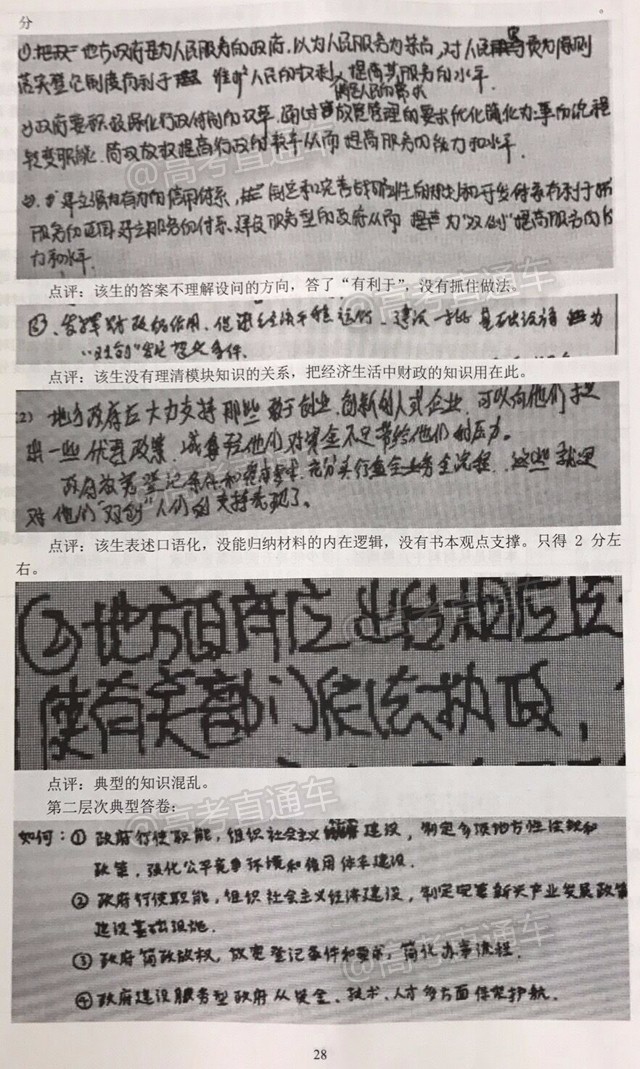 分
①地方政府是为人民服务的政府，以为人民服务为宗旨，对人民负责为原则
落实登记制度有利于维护人民的权利，提高其服务的水平
满足人民的需求
②政府要积极深化行政体制的改革，通过放宽管理的要求优化简化办事的流程
转变职能，简政放权提高行政的效率从而提高服务的能力和水平.
③建立强有力的信用体系，
服务的范围建立服务的体系、建设服务型的政府从而提高为"双创"提高服务的能
力和水平.
点评：该生的答案不理解设问的方向，答了“有利于”，没有抓住做法。
④、发挥财政的作用，促进经济平稳运行，建设一批基础设施为
"双创"发展
点评：该生没有理清模块知识的关系，把经济生活中财政的知识用在此。
(2) 地方政府应大力支持那些敢于创业，创新的人或企业，可以向他们提
出一些优惠政策，减轻他们对资金不足带给他们的压力。
政府放宽登记条件和程序要求，充分实行全业务全流程，这些就是
对他们"双创"人们的支持表现了。
点评：该生表述口语化，没能归纳材料的内在逻辑，没有书本观点支撑。只得 2 分左
右。
②地方政府应出台相应法
使有关部门依法执政，
点评：典型的知识混乱。
第二层次典型答卷：
如何：① 政府行使职能，组织社会主义建设，制定多项地方性法规和
政策，强化公平竞争环境和信用体系建设.
② 政府行使职能，组织社会主义经济建设，制定完善新兴产业发展政策
建设基础设施.
③ 政府简政放权，放宽登记条件和要求，简化办事流程.
④ 政府建设服务型政府从资金、技术、人才多方面保驾护航.
28
@高考直通车
@高考直通车
@高考直通车
@高考直通车
@高考直通车
@高考直通车